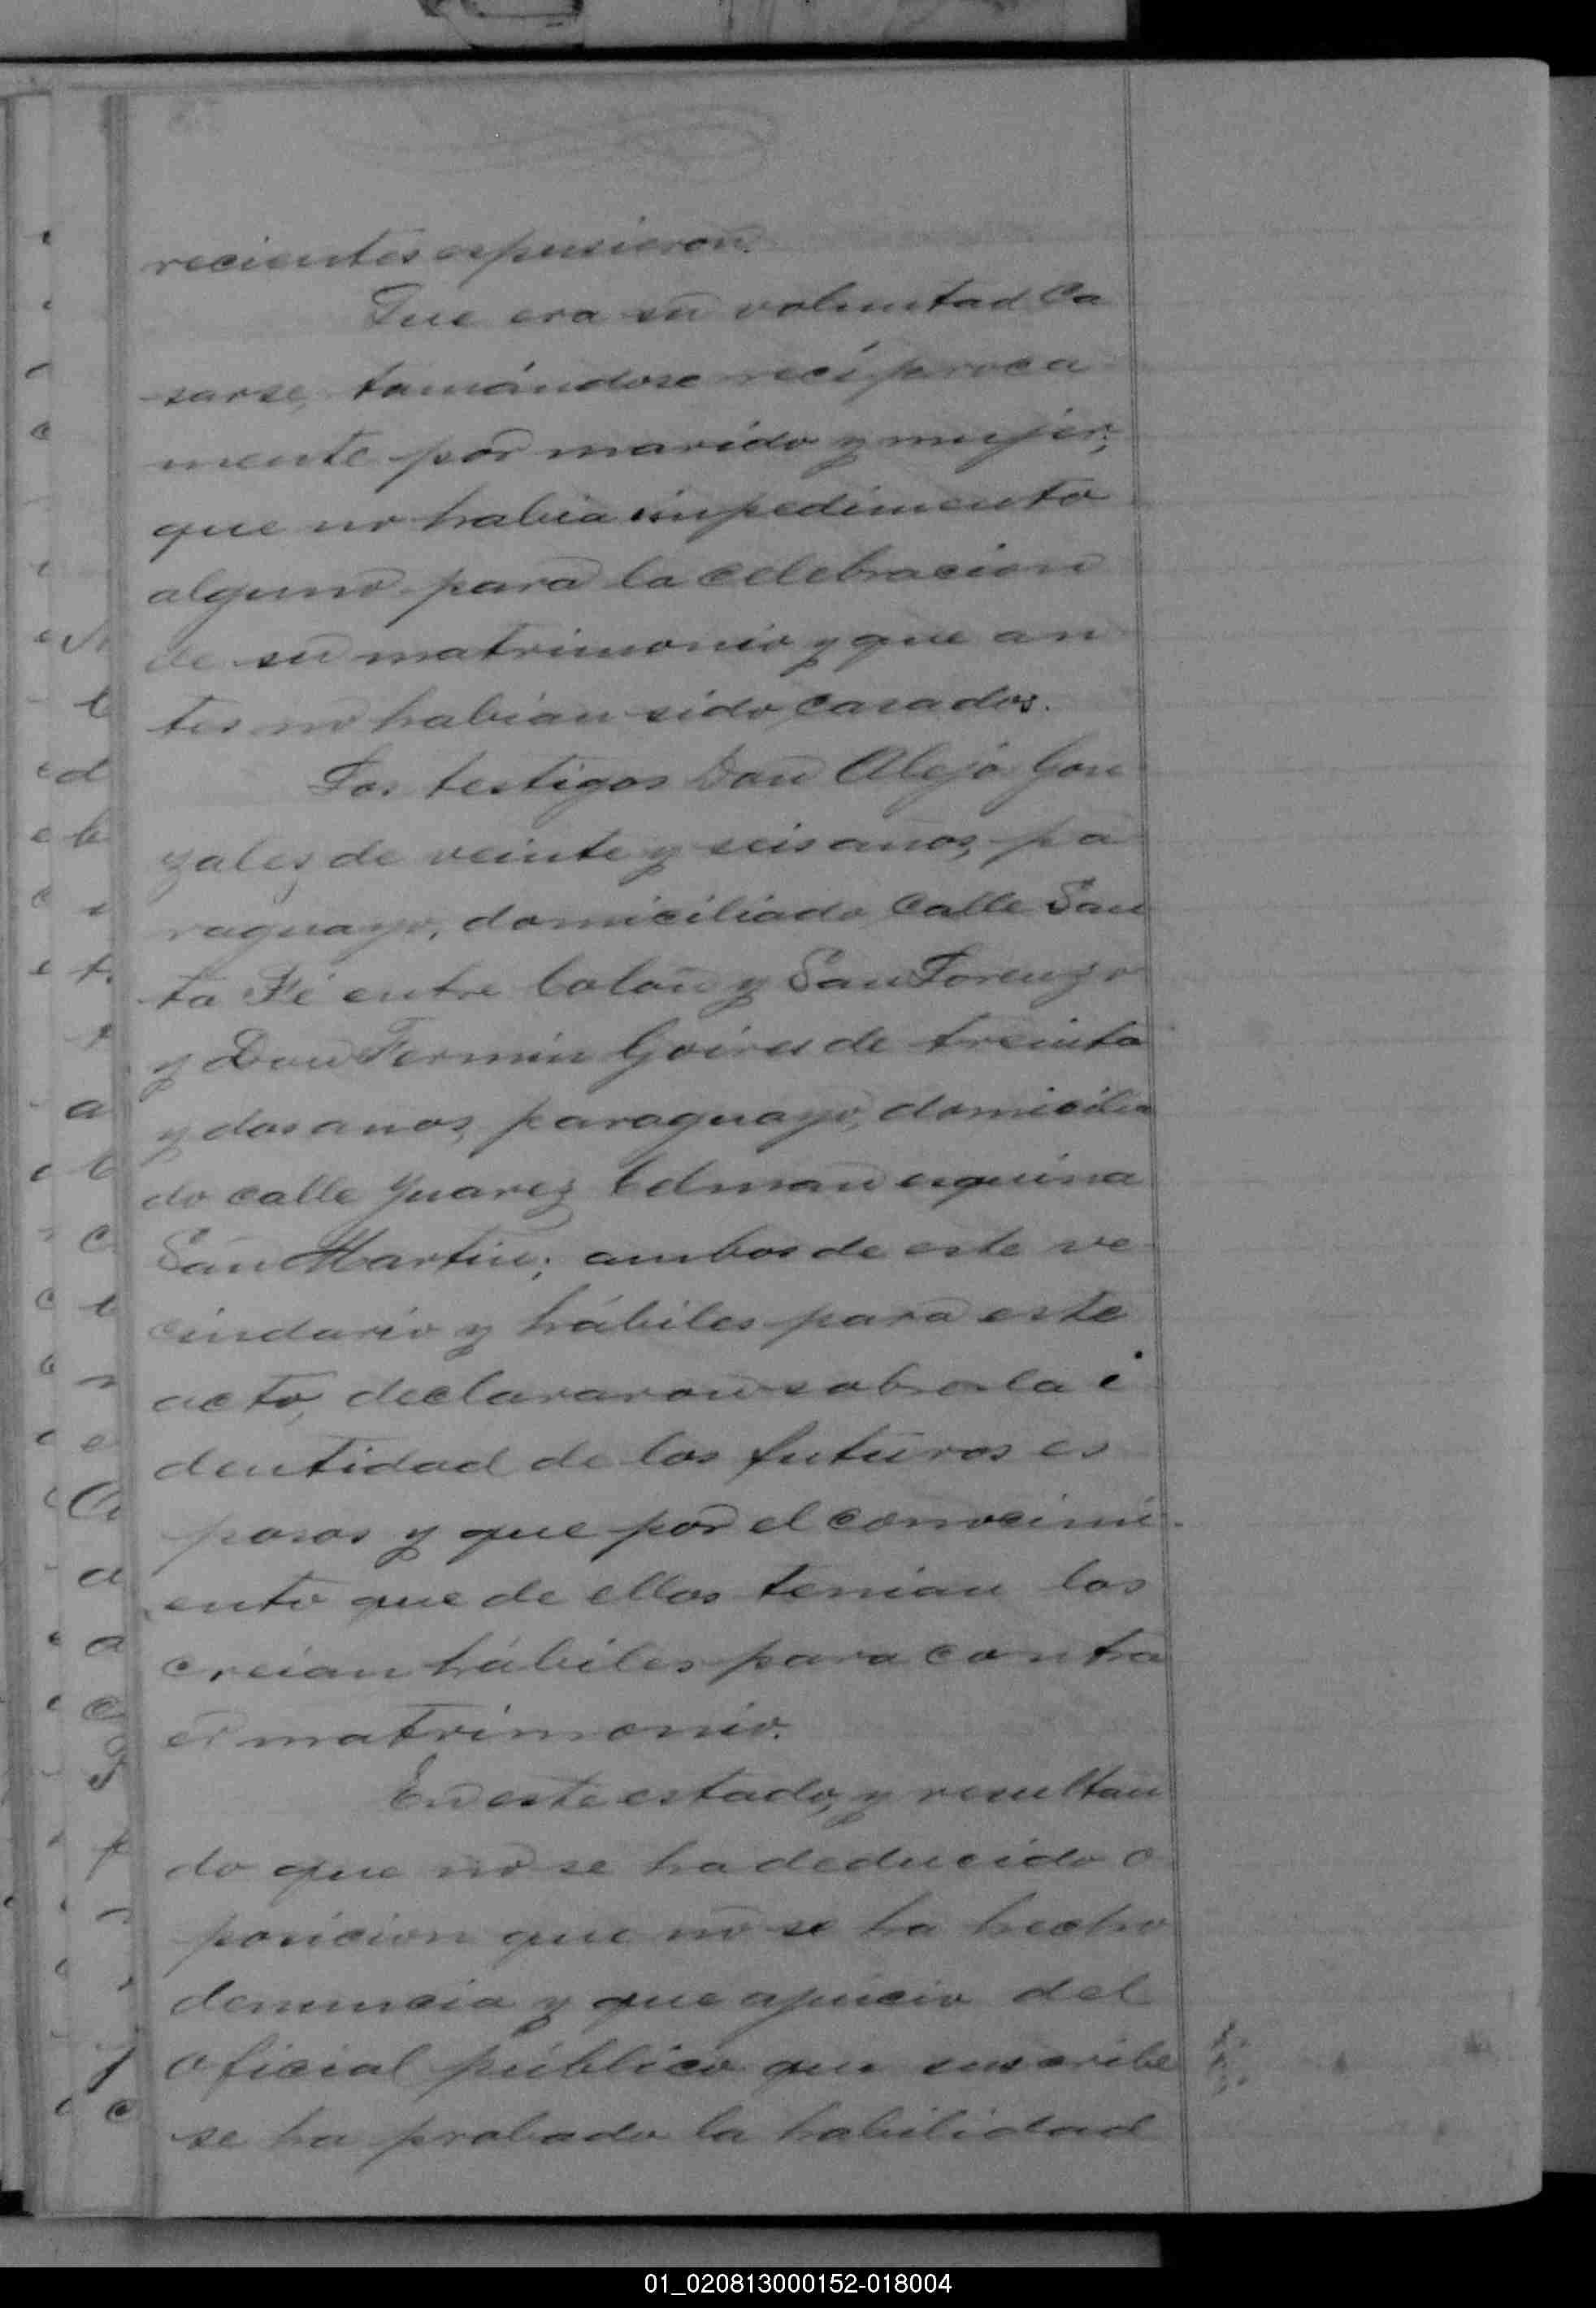 recientes espusieron.
Que era su voluntad ca
sarse, tomándose recíproca
mente por marido y mujer;
que no habia impedimento
alguno para la celebracion
de su matrimonio y que an
tes no habian sido casados.
Los testigos Don Alejo Gon
zalez de veinte y seis años, pa
raguayo, domiciliado calle San
ta Fé entre Colon y San Lorenzo
y Don Fermin de treinta
y dos años, paraguayo, domicilia
do calle Juarez Celman esquina
San Martin; ambos de este ve
cindario y hábiles para este
acto, declararon sobre la i
dentidad de los futuros es
posos y que por el conocimi-
ento que de ellos tenian los
creian hábiles para contra
er matrimonio.
En este estado, y resultan
do que no se ha deducido o
posicion que no se ha hecho
denuncia y que ajuicio del
oficial público que suscribe
se ha probado la habilidad
01_020813000152-018004